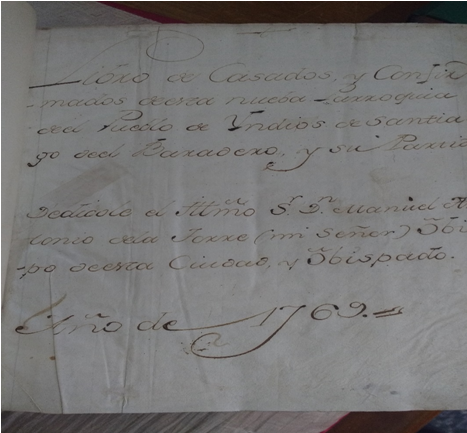 Libro de Casados, y Confir
-mados de esta nueba Parroquia
del Pueblo de Yndios de Santia
go del Baradero, y su Partido
Dedicolo el Illmõ Sr. Dn. Manuel An
tonio de la Torre (mi Señor) Obis
-po de esta Ciudad, y Obispado.
Año de 1769.